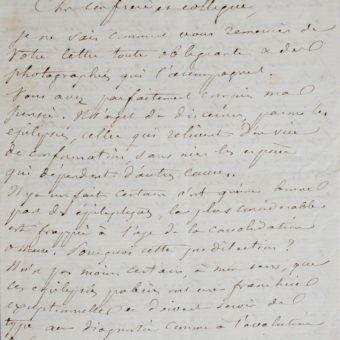 Cher confrère et collègue,
Je ne sais comment vous remercier de
votre lettre toute obligeante et des
photographies qui l'accompagnent.
Vous avez parfaitement compris ma
pensée. Il s'agit de discerner, parmi les
épilepsies, celles qui relèvent d'un vice
de conformation, sans nier les espèces
qui dépendent d'autres causes.
Il y a un fait certain c'est qu'une bonne
part des épileptiques, la plus considérable
est frappée à l'âge de la consolidation
osseuse. Pourquoi cette prédilection ?
Non pas moins certain, à mon sens, que
ces épilepsies ont une franchise
exceptionnelle et doivent servir de
type au diagnostic comme à l'évolution